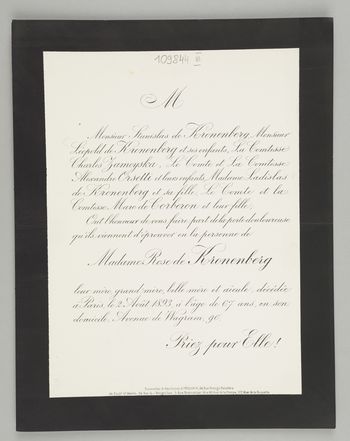 109844 III
M
Monsieur Stanislas de Kronenberg, Monsieur
Léopold de Kronenberg et ses enfants, La Comtesse
Charles Zamoyska, Le Comte et La Comtesse
Alexandre Orsetti et leurs enfants, Madame Ladislas
de Kronenberg et sa fille, Le Comte et la
Comtesse Marc de Corberon et leur fille
Ont l'honneur de vous faire part de la perte douloureuse
qu'ils viennent d'éprouver en la personne de
Madame Rose de Kronenberg
leur mère, grand'mère, belle-mère et aïeule, décédée
à Paris, le 2 Août 1893, à l'âge de 67 ans, en son
domicile, Avenue de Wagram, 90.
Priez pour Elle!